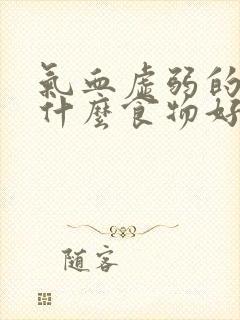 氣血虛弱的
什麼食物好
随客